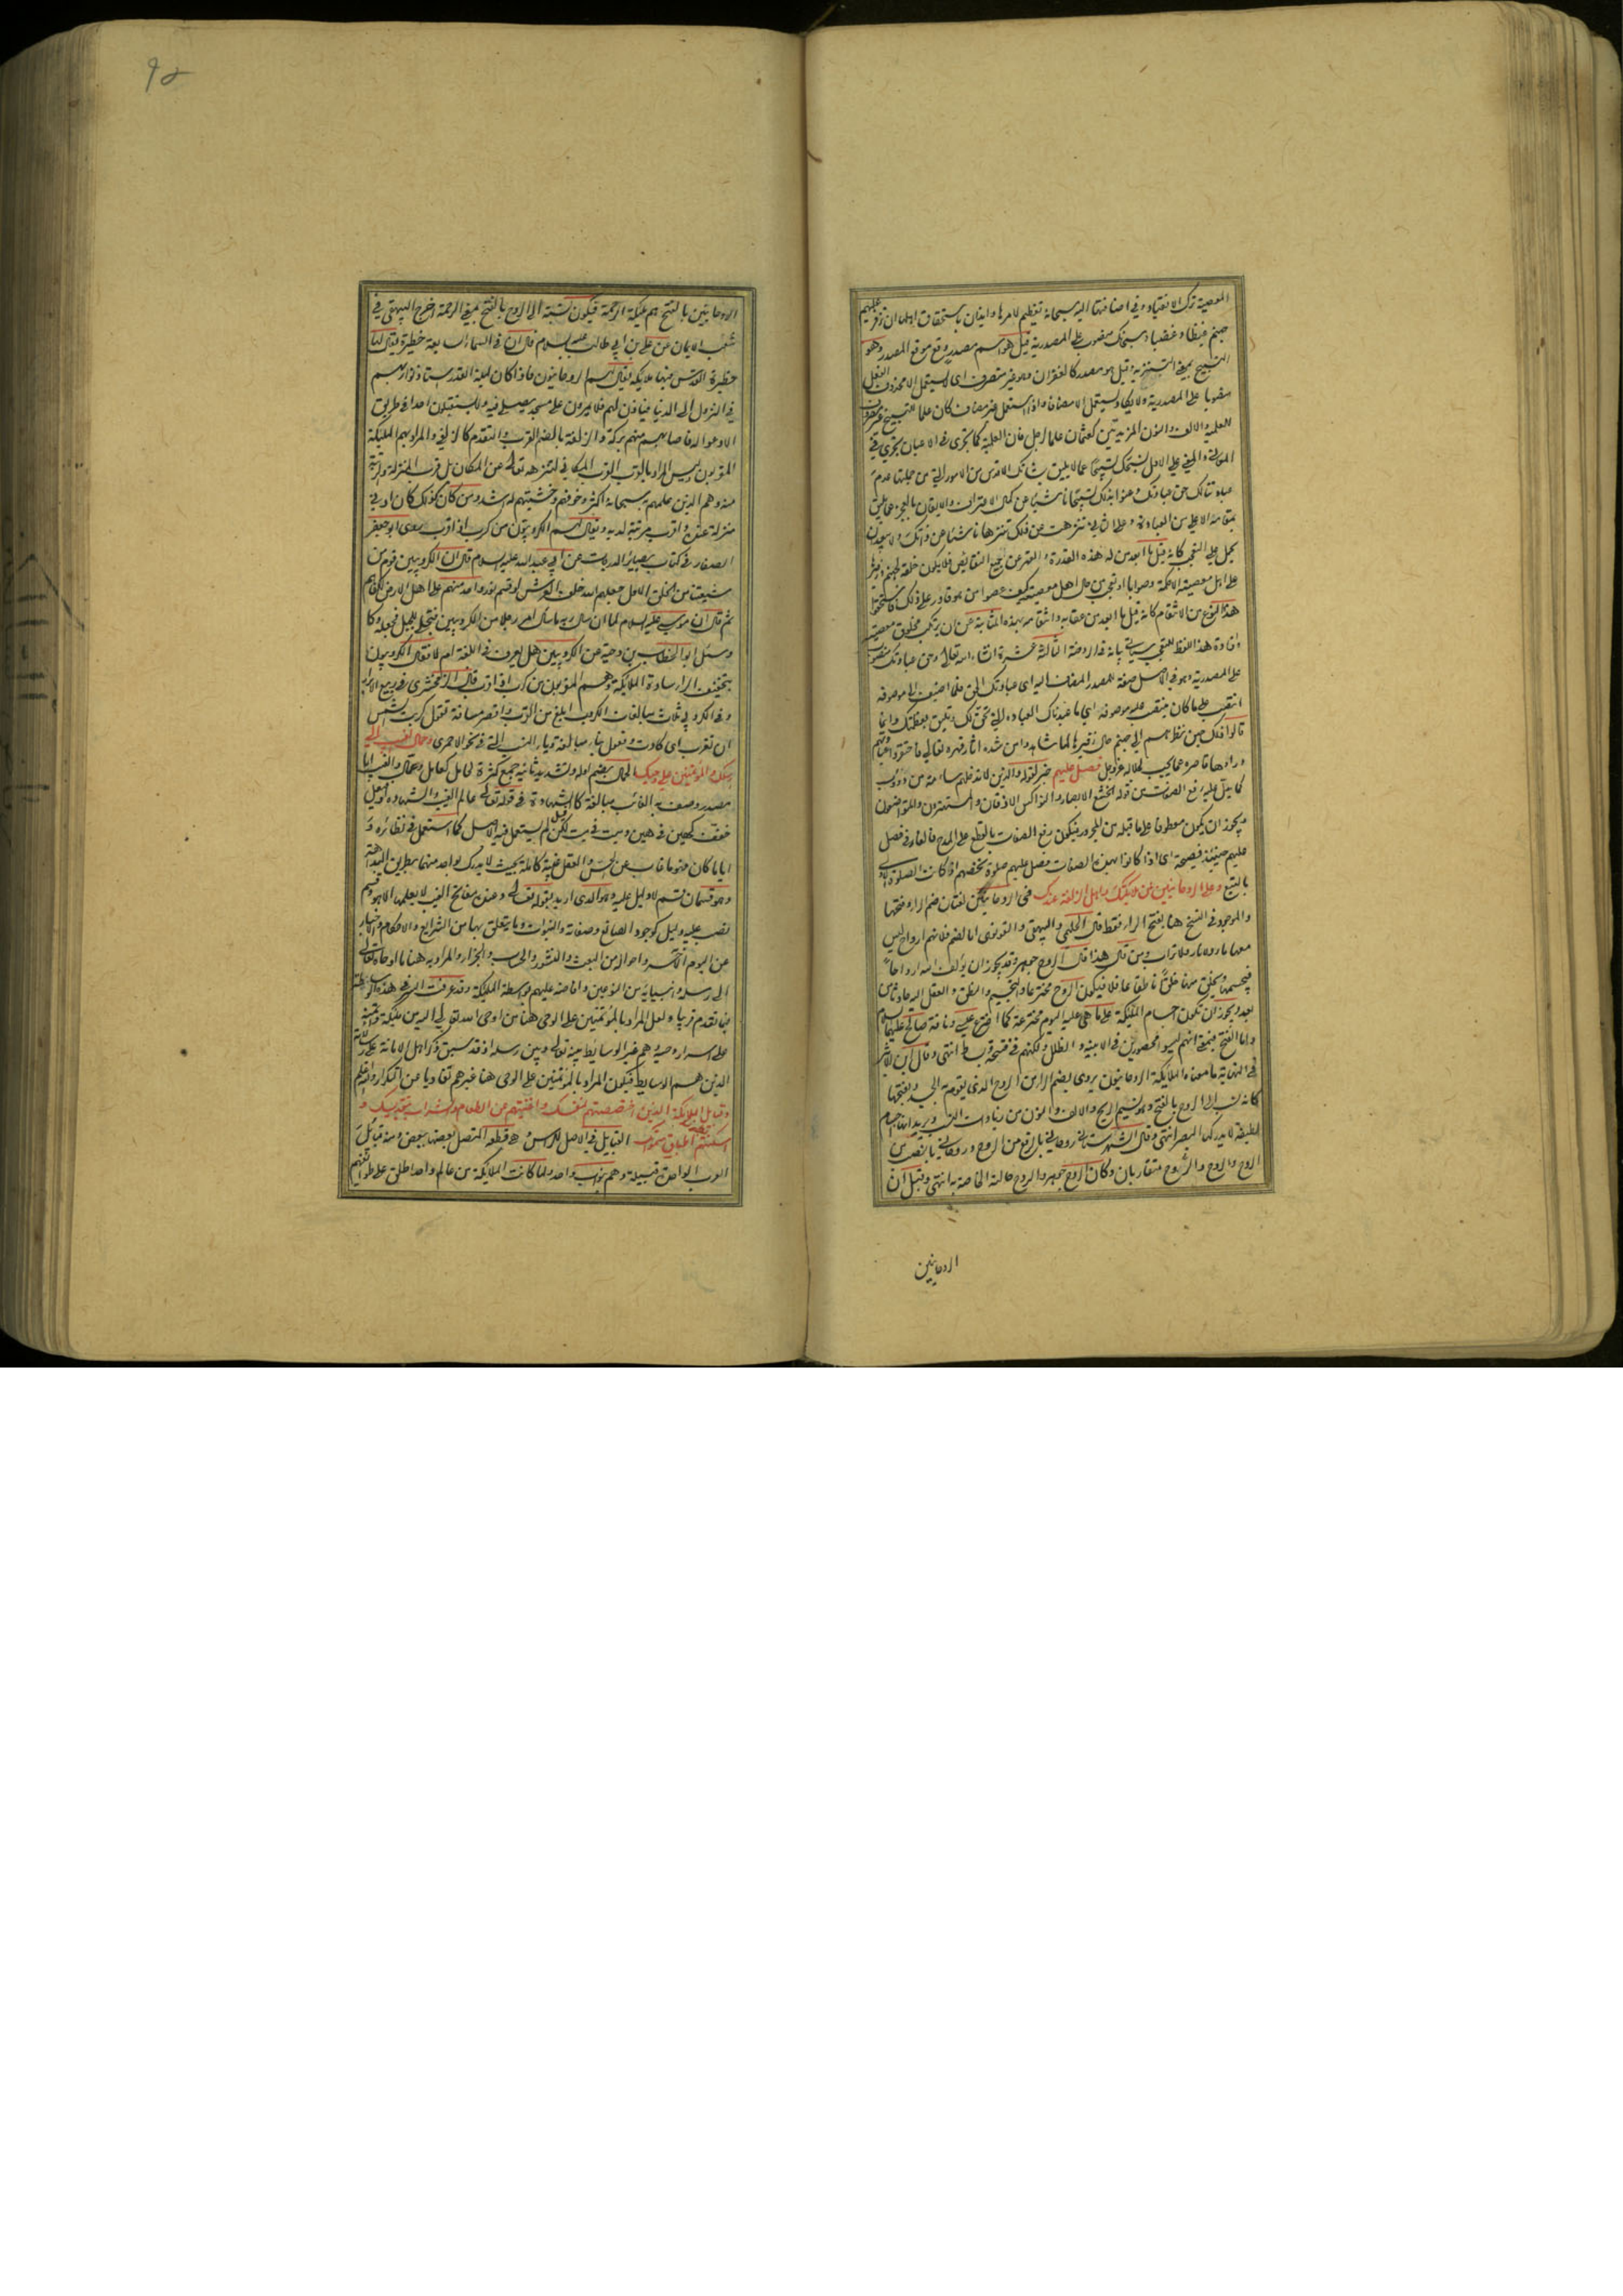 المعصية ترك الانقياد وفي اضافتها اليه سبحانه تعظيم لامرها وايذان باستحقاق اهلها ان تزفر عليهم
جهنم غيظا وغضبا وسبحانك منصوب على المصدرية قيل هو اسم مصدر وقع موقع المصدر وهو
التسبيح بمعنى التنزيه وقيل هو مصدر كالغفران وهو غير متصرف اي لا يستعمل الا محذوف الفعل
منصوبا على المصدرية ولا يكاد يستعمل الا مضافا واذا استعمل غير مضاف كان علما للتسبيح غير مصروف
للعلمية والالف والنون المزيدتين كعثمان علما لرجل فان العلمية كما تجري في الاعيان تجري في
المعاني والمعنى على الاول نسبحك تسبيحا عما لا يليق بشانك الاقدس من الامور التي من جملتها عدم
عبادتنا لك حق عبادتك
بمقامه الاعلى من العبادة وعلى الثاني تنزهت عن ذلك تنزها ناشئا عن ذاتك ولا يبعد ان
يحمل على التعجب كانه قيل ما ابعد من له هذه القدرة والتنزه عن جميع النقايص
على اهل معصيته
هذا النوع من الانتقام كانه قيل ما ابعد من عقابه وانتقامه بهذه المثابة عن ان يرتكب مخلوق معصيته
وافادة هذا اللفظ للتعجب سياتي بيانه في الروضة الثالثة عشرة ان شاء الله تعالى وحق عبادتك منصوب
على المصدرية وهو في الاصل صفة للمصدر المضاف اليه اي عبادتك الحق فلما اضيف الى موصوفه
انتصب على ما كان ينتصب عليه موصوفه اي ما عبدناك العبادة التي تحق لك وتليق بعظمتك وانما
قالوا ذلك حين نظرهم الى جهنم حال زفيرها لما شاهدوا من شدة اثار قهره تعالى
وراوها قاصرة عما يجب لجلاله عز وجل فصل عليهم خبر لقوله والذين لا تدخلهم سامة من دؤوب
كما يدل عليه رفع الصفات من قوله الخشع الابصار والنواكس الاذقان والمستهترون والمتواضعون
ويجوز ان يكون معطوفا على ما قبله من المجرور فيكون رفع الصفات بالقطع على المدح فالفاء في فصل
عليهم حينئذ فصيحة اي اذا كانوا بهذه الصفات فصل عليهم صلوة تخصهم اذ كانت الصلوة الاولى
بالتبع وعلى الروحانيين من ملائكتك واهل الزلفة عندك في الروحانيين لغتان ضم الراء وفتحها
والموجود في النسخ هنا بفتح الراء فقط قال الحليمي والبيهقي والقونوي اما الضم فلانهم ارواح ليس
معها ماء ولا نار ولا تراب ومن قال هذا قال الروح جوهر وقد يجوز ان يؤلف الله ارواحا
فيجسمها ويخلق منها خلقا ناطقا عاقلا فيكون الروح مخترعا والتجسيم والنطق والعقل اليه حادثا من
بعد ويجوز ان تكون اجسام الملئكة على ما هي عليه اليوم مخترعة كما اخترع عيسى وناقة صالح عليهما السلام
واما الفتح فبمعنى انهم ليسوا محصورين في الابنية والظلل ولكنهم في فسحة وبساط انتهى وقال ابن الاثير
في النهاية ما معناه الملائكة الروحانيون يروى بضم الراء من الروح الذي يقوم به الجسد وبفتحها
كانه نسب الى الروح بالفتح وهو نسيم الريح والالف والنون من زيادات النسب ويريد انها اجسام
لطيفة لا يدركها البصر انتهى وقال الشهرستاني روحاني بالرفع من الروح وروحاني بالنصب من
الروح والروح والروح متقاربان وكان الروح جوهر والروح حالته الخاصة به انتهى وقيل ان
الروحانيين
الروحانيين بالفتح هم ملئكة الرحمة فيكون نسبة الى الروح بالفتح بمعنى الرحمة اخرج البيهقي في
شعب الايمان عن علي بن ابي طالب عليه السلام قال ان في السماء السابعة حظيرة يقال لها
حظيرة القدس فيها ملايكة يقال لهم الروحانيون فاذا كان ليلة القدر استاذنوا ربهم
في النزول الى الدنيا فياذن لهم فلا يمرون على مسجد يصلى فيه ولا يستقبلون احدا في طريق
الا دعوا له فاصابه منهم بركة والزلفة بالضم القرب والتقدم كالزلفى والمراد بهم الملئكة
المقربون وليس المراد بالقرب القرب المكاني لتنزهه تعالى عن المكان بل قرب المنزلة والرتبة
منه وهم الذين علمهم به سبحانه اكثر وخوفهم وخشيتهم له اشد ومن كان كذلك كان ادنى
منزلة عنده واقرب مرتبة لديه ويقال لهم الكروبيون من كرب اذا قرب روى ابو جعفر
الصفار في كتاب بصائر الدرجات عن ابي عبد الله عليه السلام قال ان الكروبيين قوم من
شيعتنا من الخلق الاول جعلهم الله خلف العرش لو قسم نور واحد منهم على اهل الارض لكفاهم
ثم قال ان موسى عليه السلام لما ان سال ربه ما سال امر رجلا من الكروبيين فتجلى للجبل فجعله دكا
وسئل ابو الخطاب بن دحية عن الكروبيين هل يعرف في اللغة ام لا فقال الكروبيون
بتخفيف الراء سادة الملايكة وهم المقربون من كرب اذا قرب قال الزمخشري في ربيع الابرار
وفي الكروبي ثلاث مبالغات الكرب ابلغ من القرب واقصر مسافة تقول كربت الشمس
ان تغرب اي كادت وفعول بناء مبالغة وياء النسب التي في نحو الاحمري وحمال الغيب الى
رسلك والمؤتمنين على وحيك الحمال بضم اوله وتشديد ثانيه جمع كثرة لحامل كعامل وعمال والغيب اما
مصدر وصف به الغائب مبالغة كالشهادة في قوله تعالى عالم الغيب والشهادة او فيعل
خفف كهين في هين وميت في ميت لكن لم يستعمل فيه الاصل كما استعمل في نظائره و
ايا ما كان فهو ما غاب عن الحس والعقل غيبة كاملة بحيث لا يدرك بواحد منهما بطريق البداهة
وهو قسمان قسم لا دليل عليه وهو الذي اريد بقوله تعالى وعنده مفاتح الغيب لا يعلمها الا هو وقسم
نصب عليه دليل كوجود الصانع وصفاته والنبوات وما يتعلق بها من الشرائع والاحكام والاخبار
عن اليوم الآخر واحواله من البعث والنشور والحساب والجزاء والمراد به هنا ما اوحاه تعالى
الى رسله وانبيائه من المؤمنين وافاضه عليهم بواسطة الملئكة وقد عرفت السر في هذه الواسطة
فيما تقدم قريبا ولعل المراد بالمؤتمنين على الوحي هنا من اوحى الله تعالى اليه من ملئكته وائتمنه
على اسرار وحيه وهم غير الوسائط بينه تعالى وبين رسله اذ قد سبق ذكر اهل الامانة على رسالاته
الذين هم الوسايط فيكون المراد بالمؤتمنين على الوحي هنا غيرهم تفاديا من التكرار والله اعلم
وقبايل الملائكة الذين اختصصتهم لنفسك واغنيتهم عن الطعام والشراب بتقديسك و
اسكنتهم بطون اطباق سمواتك القبايل في الاصل للراس وهي قطعه المتصل بعضها ببعض ومنه قبائل
العرب الواحدة قبيلة وهم بنو اب واحد ولما كانت الملايكة من عالم واحد اطلق على طوائفهم